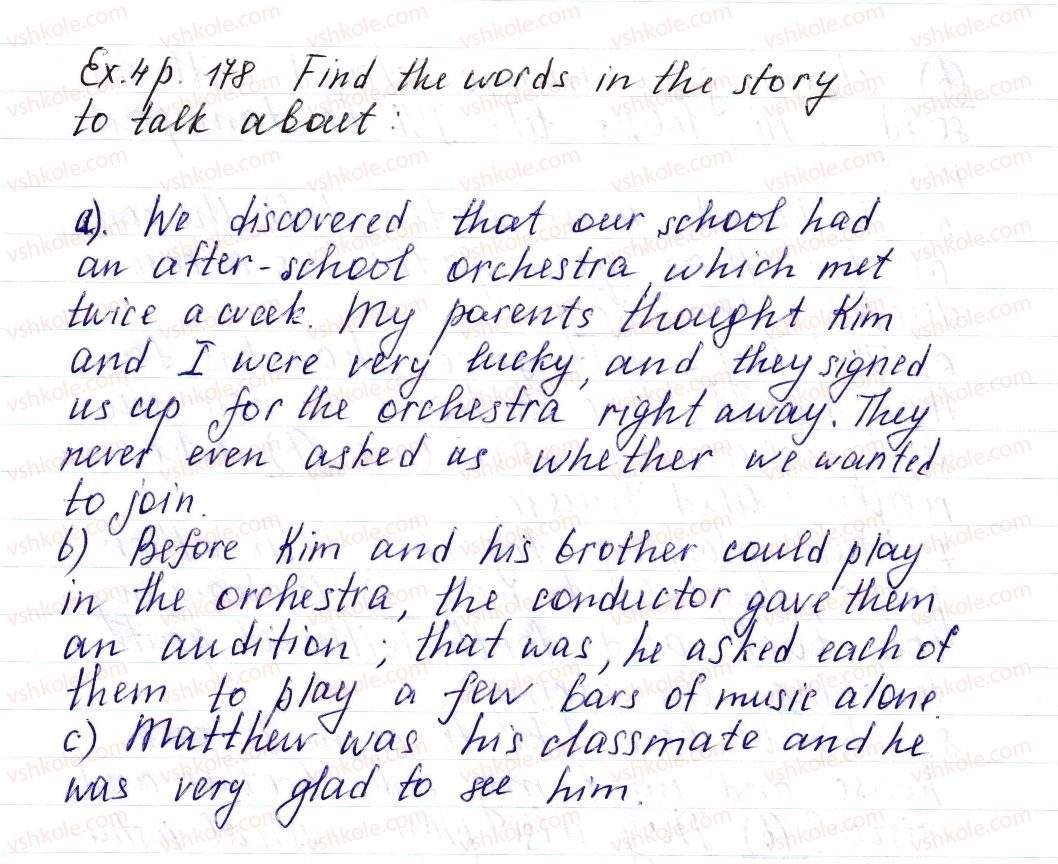 Ex.4 p. 178 Find the words in the story
to talk about:
a). We discovered that our school had
an after-school orchestra, which met
twice a week. My parents thought Kim
and I were very lucky, and they signed
us up for the orchestra right away. They
never even asked us whether we wanted
to join.
b) Before Kim and his brother could play
in the orchestra, the conductor gave them
an audition; that was, he asked each of
them to play a few bars of music alone.
c) Matthew was his classmate and he
was very glad to see him.
vshkole.com